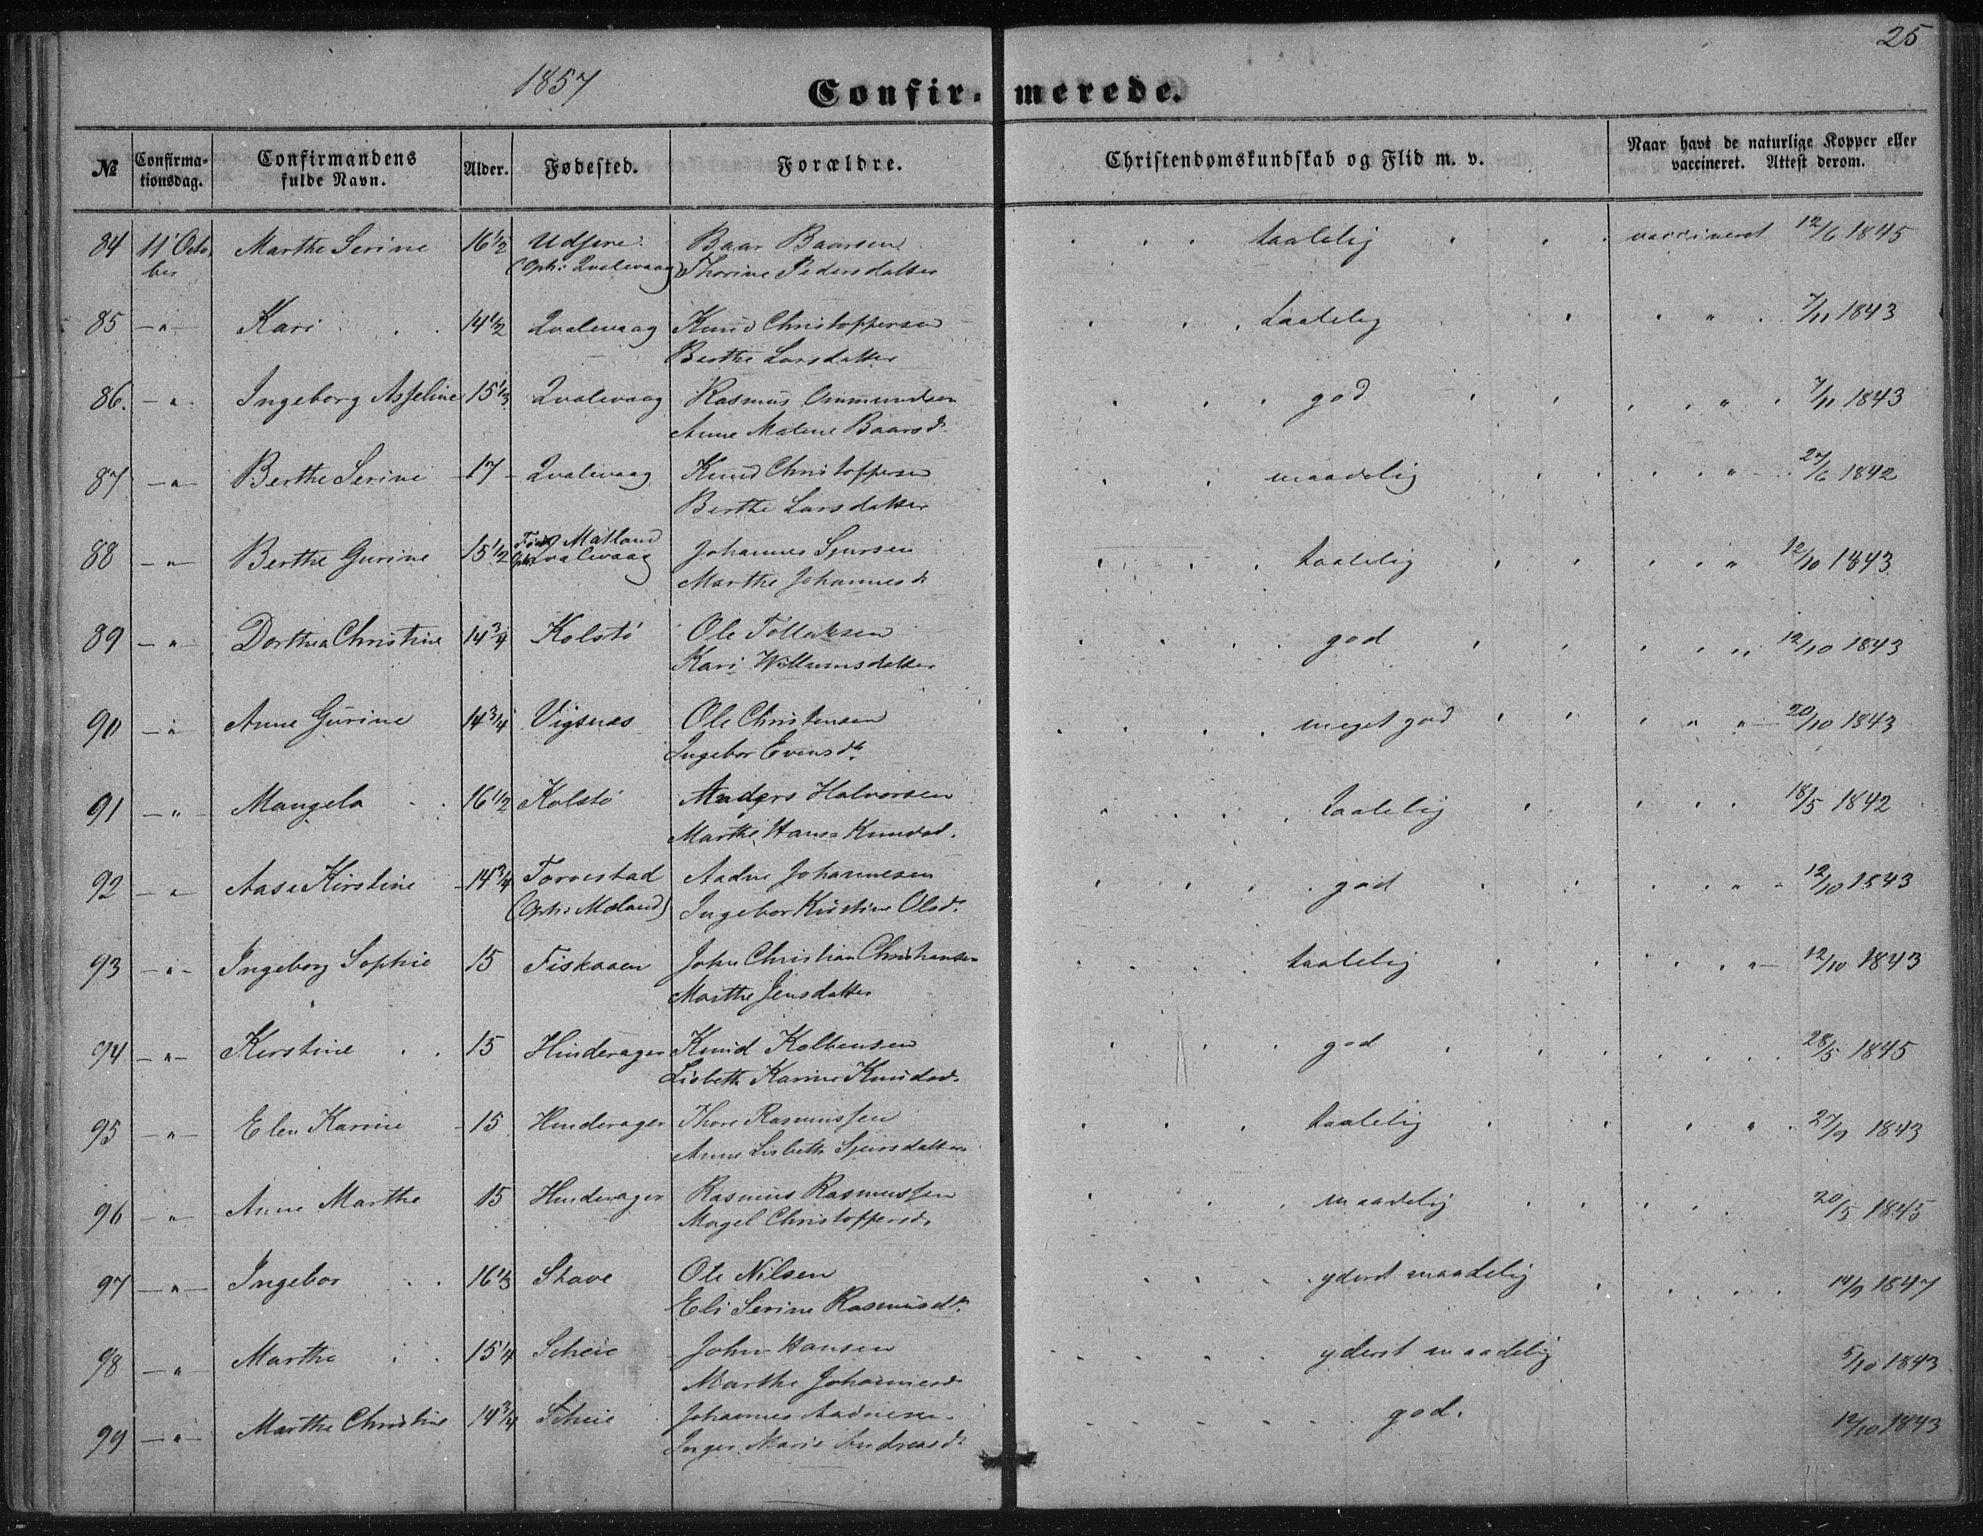 25
1857
Confirmerede.
№ Confirmationsdag. Confirmandens fulde Navn. Alder. Fødested. Forældre. Christendomskundskab og Flid m. v. Naar havt de naturlige Kopper eller vaccineret. Attest derom.
84 11' Octo- Marthe Serine 16 1/2 Udsire Baar Baarsen taalelig vaccineret 12/6 1845
ber (Oph: Qvalevaag) Thorine Pedersdatter
85 –"– Kari 14 1/2 Qvalevaag Knud Christophersen taalelig " 7/11 1843
Berthe Larsdatter
86. –"– Ingeborg Asseline 15 1/3 Qvalevaag Rasmus Ommundsen god " 7/11 1843
Anne Malene Baarsd.
87 –"– Berthe Serine 17 Qvalevaag Knud Christoffersen maadelig " 27/6 1842
Berthe Larsdatter
88 –"– Berthe Gurine 15 1/2 Født Matland Johannes Sjursen taalelig " 12/10 1843
Oph: Qvalevaag Marthe Johannesd.
89 –"– Dorthea Christine 14 3/4 Kolstø Ole Tollaksen god " 12/10 1843
Kari Willumsdatter
90 –"– Anne Gurine 14 3/4 Vigsnæs Ole Christensen meget god " " 20/10 1843
Ingebor Evensd.
91 –"– Mangela 16 1/2 Kolstø Anders Halvorsen taalelig 18/5 1842
Marthe Hansa Knudsd.
92 –"– Aasa Kirstine 14 3/4 Torvestad Aadne Johannesen god " 12/10 1843
(Oph: Mæland) Ingebor Kirstine Olsd.
93 –"– Ingeborg Sophie 15 Fiskaaen John Christian Christiansen taalelig " 12/10 1843
Marthe Jensdatter
94 –"– Kirstine 15 Hinderager Knud Kolbensen god 28/5 1845
Lisbeth Karine Knudsd.
95 –"– Elen Karine 15 Hinderager Thore Rasmussen taalelig " 27/9 1843
Anne Lisbeth Sjursdatter
96 –"– Anne Marthe 15 Hinderager Rasmus Rasmussen maadelig 20/5 1845
Magel Christoffersd.
97 –"– Ingebor 16 1/3 Stave Ole Nilsen yderst maadelig 14/9 1847
Eli Serine Rasmusd.
98 –"– Marthe 15 1/4 Scheie John Hansen yderst maadelig 5/10 1843
Marthe Johannesd.
99 –"– Marthe Christine 14 3/4 Scheie Johannes Aadnesen god. 12/10 1843
Inger Marie Andreasd.